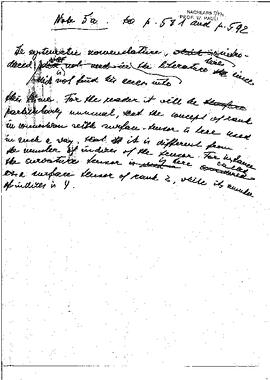 Note 5a to p. 581 and p. 592
NACHLASS
PROF. W. PAULI
The systematic nomenclature, intro-
duced here
not in the literature since
did not find its
this time. For the reader it will be
particularly unusual, that the concept of rank
in connection with surface-tensor is here used
in such a way, that it is different from
the number of indices of the tensor. For instance
the curvature tensor is here called
as a surface tensor of rank 2, while its number
of indices is 4.